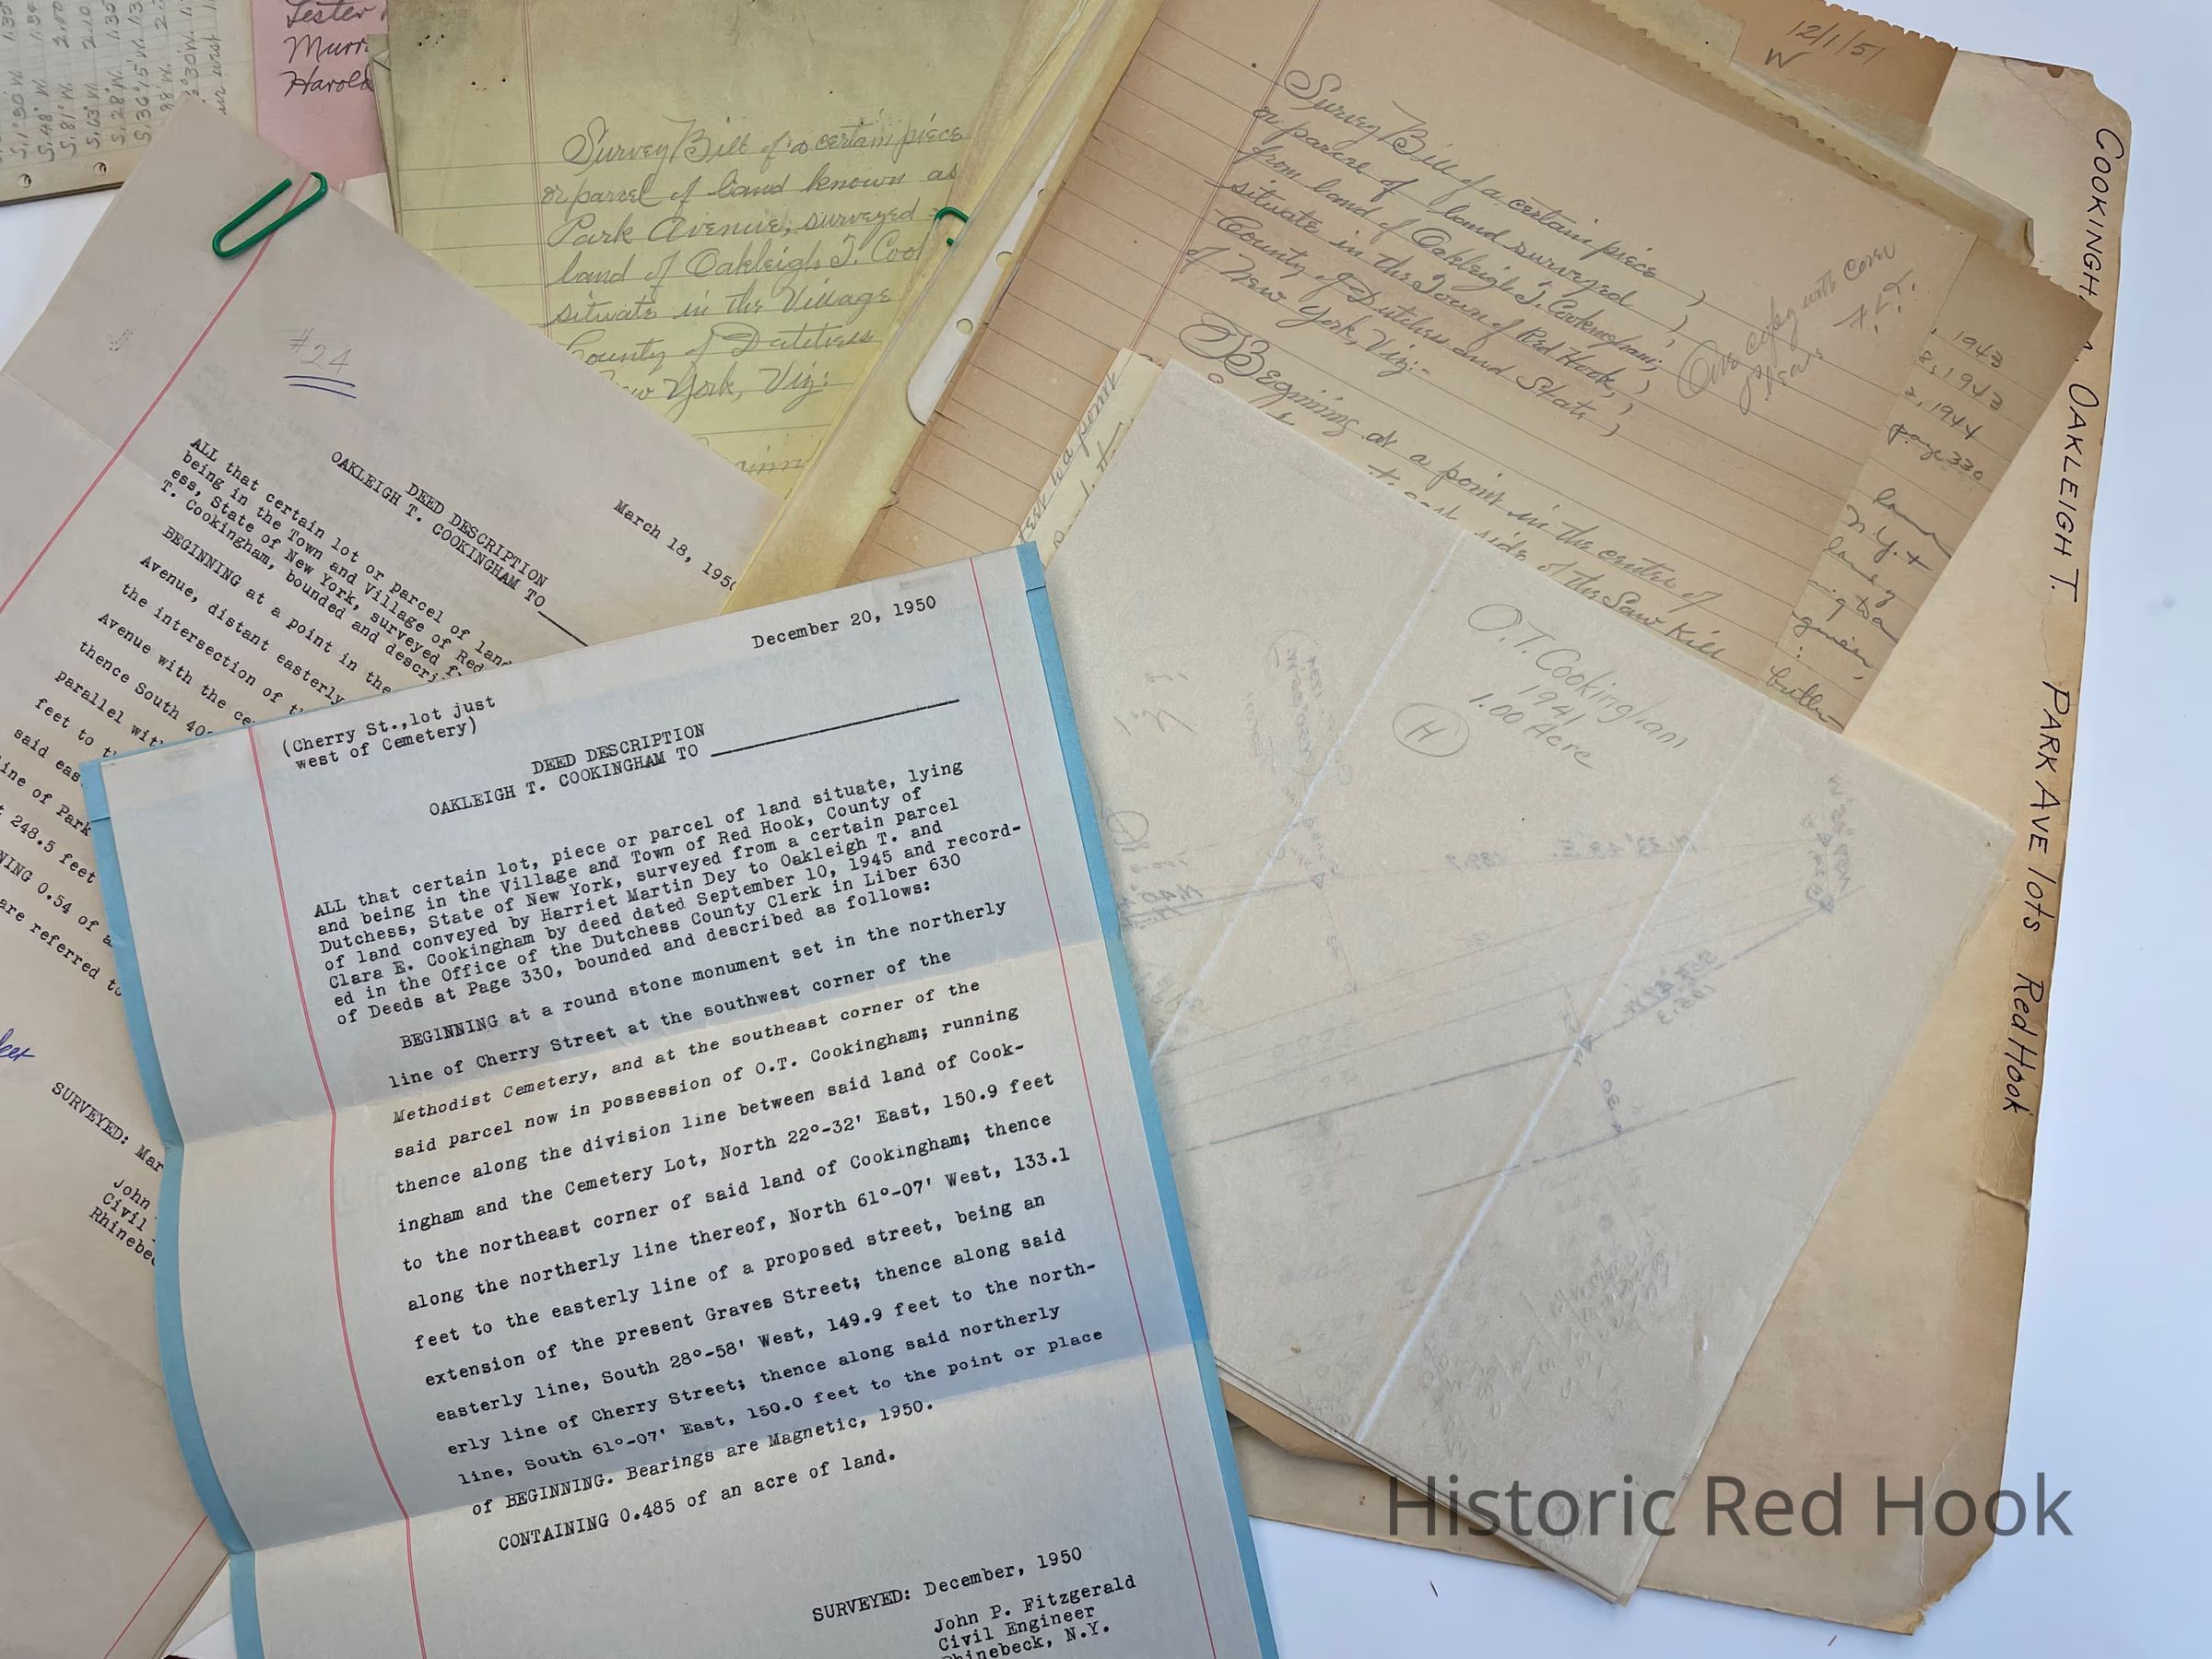 1.35
S.1°30'W.
S.48° W. 1.34
S.81° W. 2.70
S.63° W. 2.10
S.28° W. 1.35
S.36°15'W.
Lester
Murr
Harold
Survey Bill of a certain piece
or parcel of land known as
Park Avenue, surveyed
land of Oakleigh T. Coo
situate in the Village
County of Dutchess
New York, Viz:
12/1/51
W
Survey Bill of a certain piece
or parcel of land surveyed
from land of Oakleigh T. Cookingham;
situate in the Town of Red Hook,
County of Dutchess and State
of New York, Viz:-
One copy with cover
Beginning at a point in the center of
side of the Saw Kill
, 1943
8, 1943
2, 1944
page 330
N.Y.
COOKINGHAM, OAKLEIGH T. PARK AVE lots Red Hook
#24
March 18, 1950
DEED DESCRIPTION
OAKLEIGH T. COOKINGHAM TO
ALL that certain lot or parcel of land
being in the Town and Village of Red
ess, State of New York, surveyed f
T. Cookingham, bounded and descri
BEGINNING at a point in the
Avenue, distant easterly
the intersection of t
Avenue with the ce
thence South 40°
parallel wit
feet to t
said eas
ine of Park
248.5 feet
NING 0.54 of a
are referred to
SURVEYED: Mar
John
Civil
Rhinebe
O.T. Cookingham
1941
1.00 Acre
H
December 20, 1950
(Cherry St.,lot just
west of Cemetery)
DEED DESCRIPTION
OAKLEIGH T. COOKINGHAM TO
ALL that certain lot, piece or parcel of land situate, lying
and being in the Village and Town of Red Hook, County of
Dutchess, State of New York, surveyed from a certain parcel
of land conveyed by Harriet Martin Dey to Oakleigh T. and
Clara E. Cookingham by deed dated September 10, 1945 and record-
ed in the Office of the Dutchess County Clerk in Liber 630
of Deeds at Page 330, bounded and described as follows:
BEGINNING at a round stone monument set in the northerly
line of Cherry Street at the southwest corner of the
Methodist Cemetery, and at the southeast corner of the
said parcel now in possession of O.T. Cookingham; running
thence along the division line between said land of Cook-
ingham and the Cemetery Lot, North 22°-32' East, 150.9 feet
to the northeast corner of said land of Cookingham; thence
along the northerly line thereof, North 61°-07' West, 133.1
feet to the easterly line of a proposed street, being an
extension of the present Graves Street; thence along said
easterly line, South 28°-58' West, 149.9 feet to the north-
erly line of Cherry Street; thence along said northerly
line, South 61°-07' East, 150.0 feet to the point or place
of BEGINNING. Bearings are Magnetic, 1950.
CONTAINING 0.485 of an acre of land.
SURVEYED: December, 1950
John P. Fitzgerald
Civil Engineer
Rhinebeck, N.Y.
Historic Red Hook